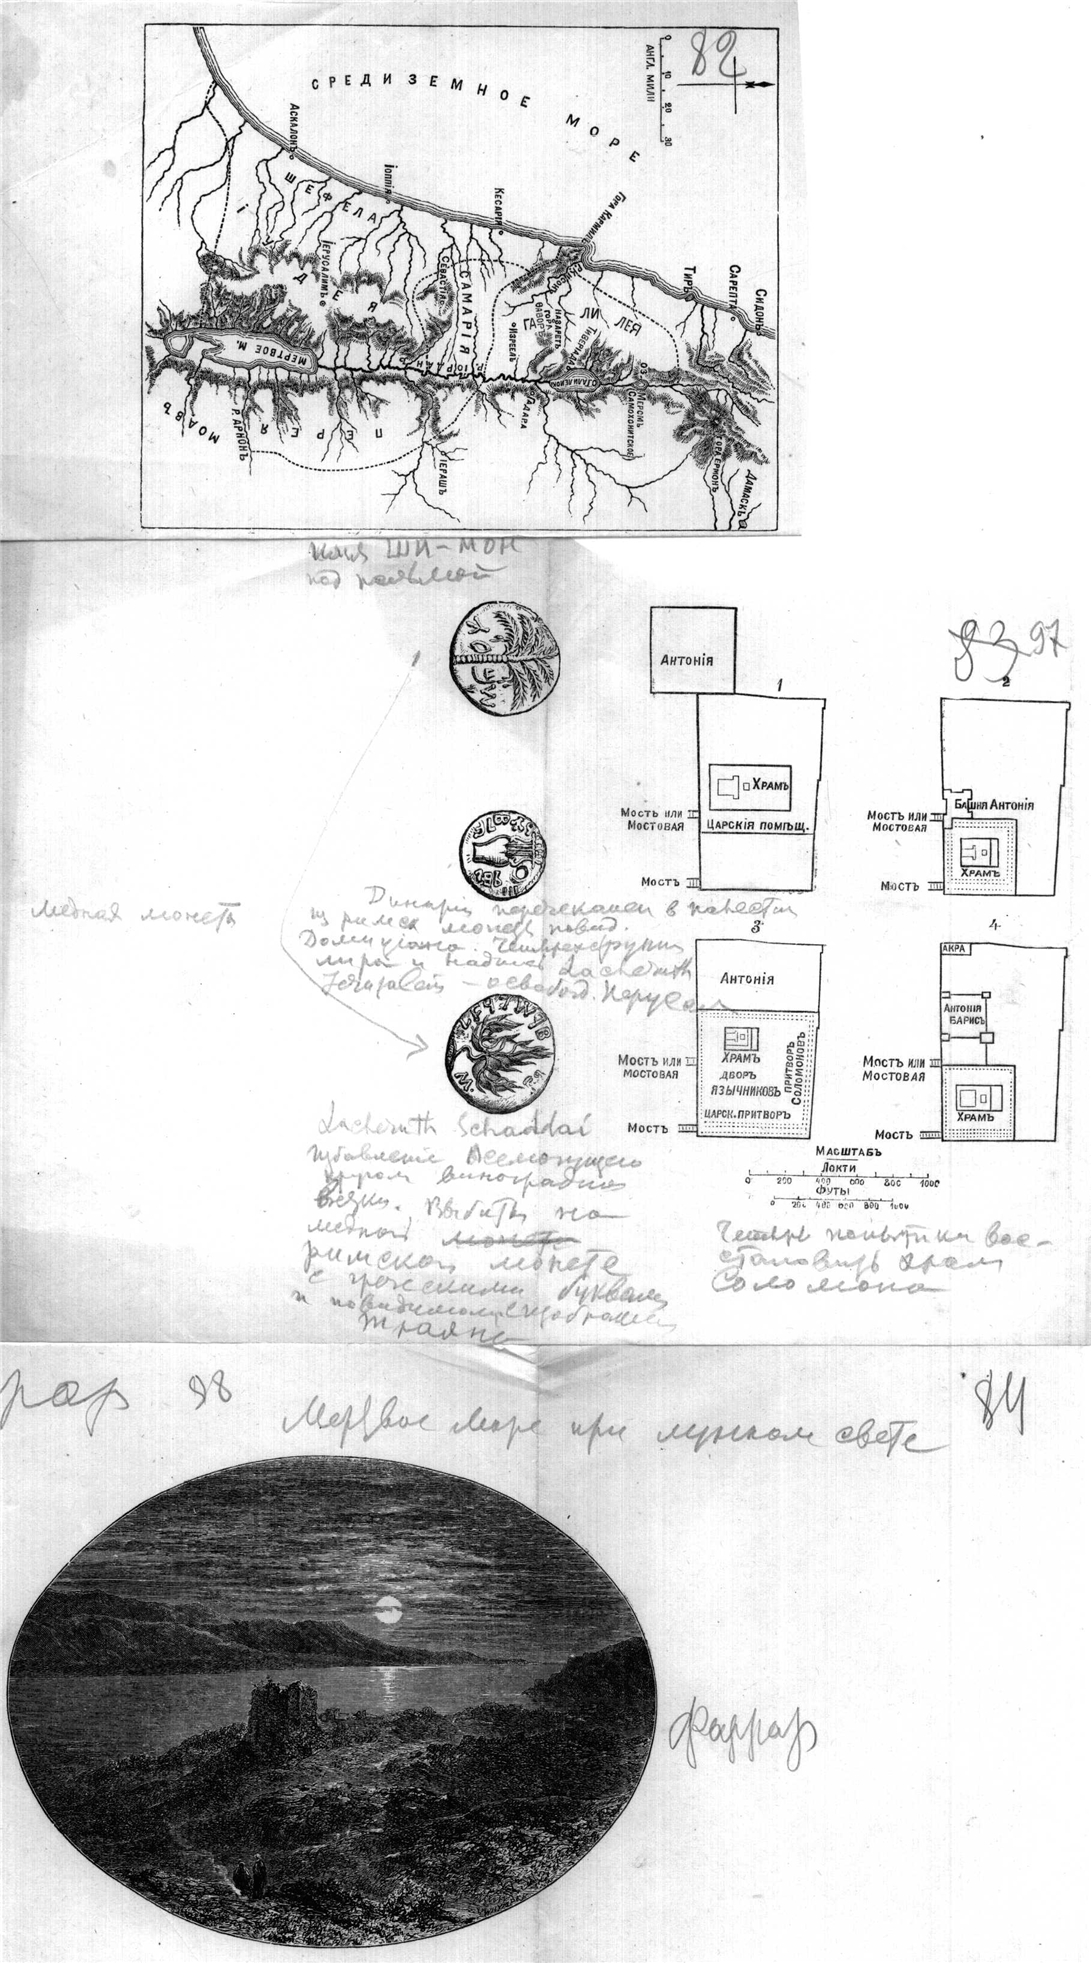 82
СРЕДИЗЕМНОЕ МОРЕ
0 10 20 30
АНГЛ. МИЛИ
АСКАЛОНЪ
ІОППІЯ
КЕСАРІЯ
ГОРА КАРМИЛЪ
ТИРЪ
САРЕПТА
СИДОНЪ
ШЕФЕЛА
ІУДЕЯ
ІЕРУСАЛИМЪ
СЕВАСТІЯ
САМАРІЯ
ГАЛИЛЕЯ
НАЗАРЕТЪ
ГОРА ѲАВОРЪ
ИЗРЕЕЛЬ
ТИВЕРІАДА
МЕРТВОЕ М.
Р. ІОРДАНЪ
О. ГАЛИЛЕЙСКОЕ
ОЗ. МЕРОМЪ
САМОХОНИТСКОЕ
ГАДАРА
МОАВЪ
Р. АРНОНЪ
ПЕРЕЯ
ГЕРАШЪ
ГОРА ЕРМОНЪ
ДАМАСКЪ
ШИ-МОН
под пальмой
83 97
АНТОНІЯ
1
ХРАМЪ
ЦАРСКІЯ ПОМѢЩ.
МОСТЪ ИЛИ
МОСТОВАЯ
МОСТЪ
2
БАШНЯ АНТОНІЯ
МОСТЪ ИЛИ
МОСТОВАЯ
ХРАМЪ
МОСТЪ
медная монета
Динарий перечеканен в
из римск монеты
Домициана. Четырехструн
лира и надпись Lacheruth
Jerusalem – освобод. Иерусал
3
АНТОНІЯ
ХРАМЪ
ДВОРЪ
ЯЗЫЧНИКОВЪ
ПРИТВОРЪ
СОЛОМОНОВЪ
ЦАРСК. ПРИТВОРЪ
МОСТЪ ИЛИ
МОСТОВАЯ
МОСТЪ
4
АКРА
АНТОНІЯ
БАРИСЪ
МОСТЪ ИЛИ
МОСТОВАЯ
ХРАМЪ
МОСТЪ
МАСШТАБЪ
ЛОКТИ
0 200 400 600 800 1000
ФУТЫ
0 200 400 600 800 1000
Lacheruth Schaddai
Избавление Всемогущего
кругом виноградной
Выбита на
медной монете
римской монете
с греческими буквами
и повидимому изображен
Траяна
Четыре попытки вос-
становить храм
Соломона
рар 98
84
Мертвое море при лунном свете
Фаррар